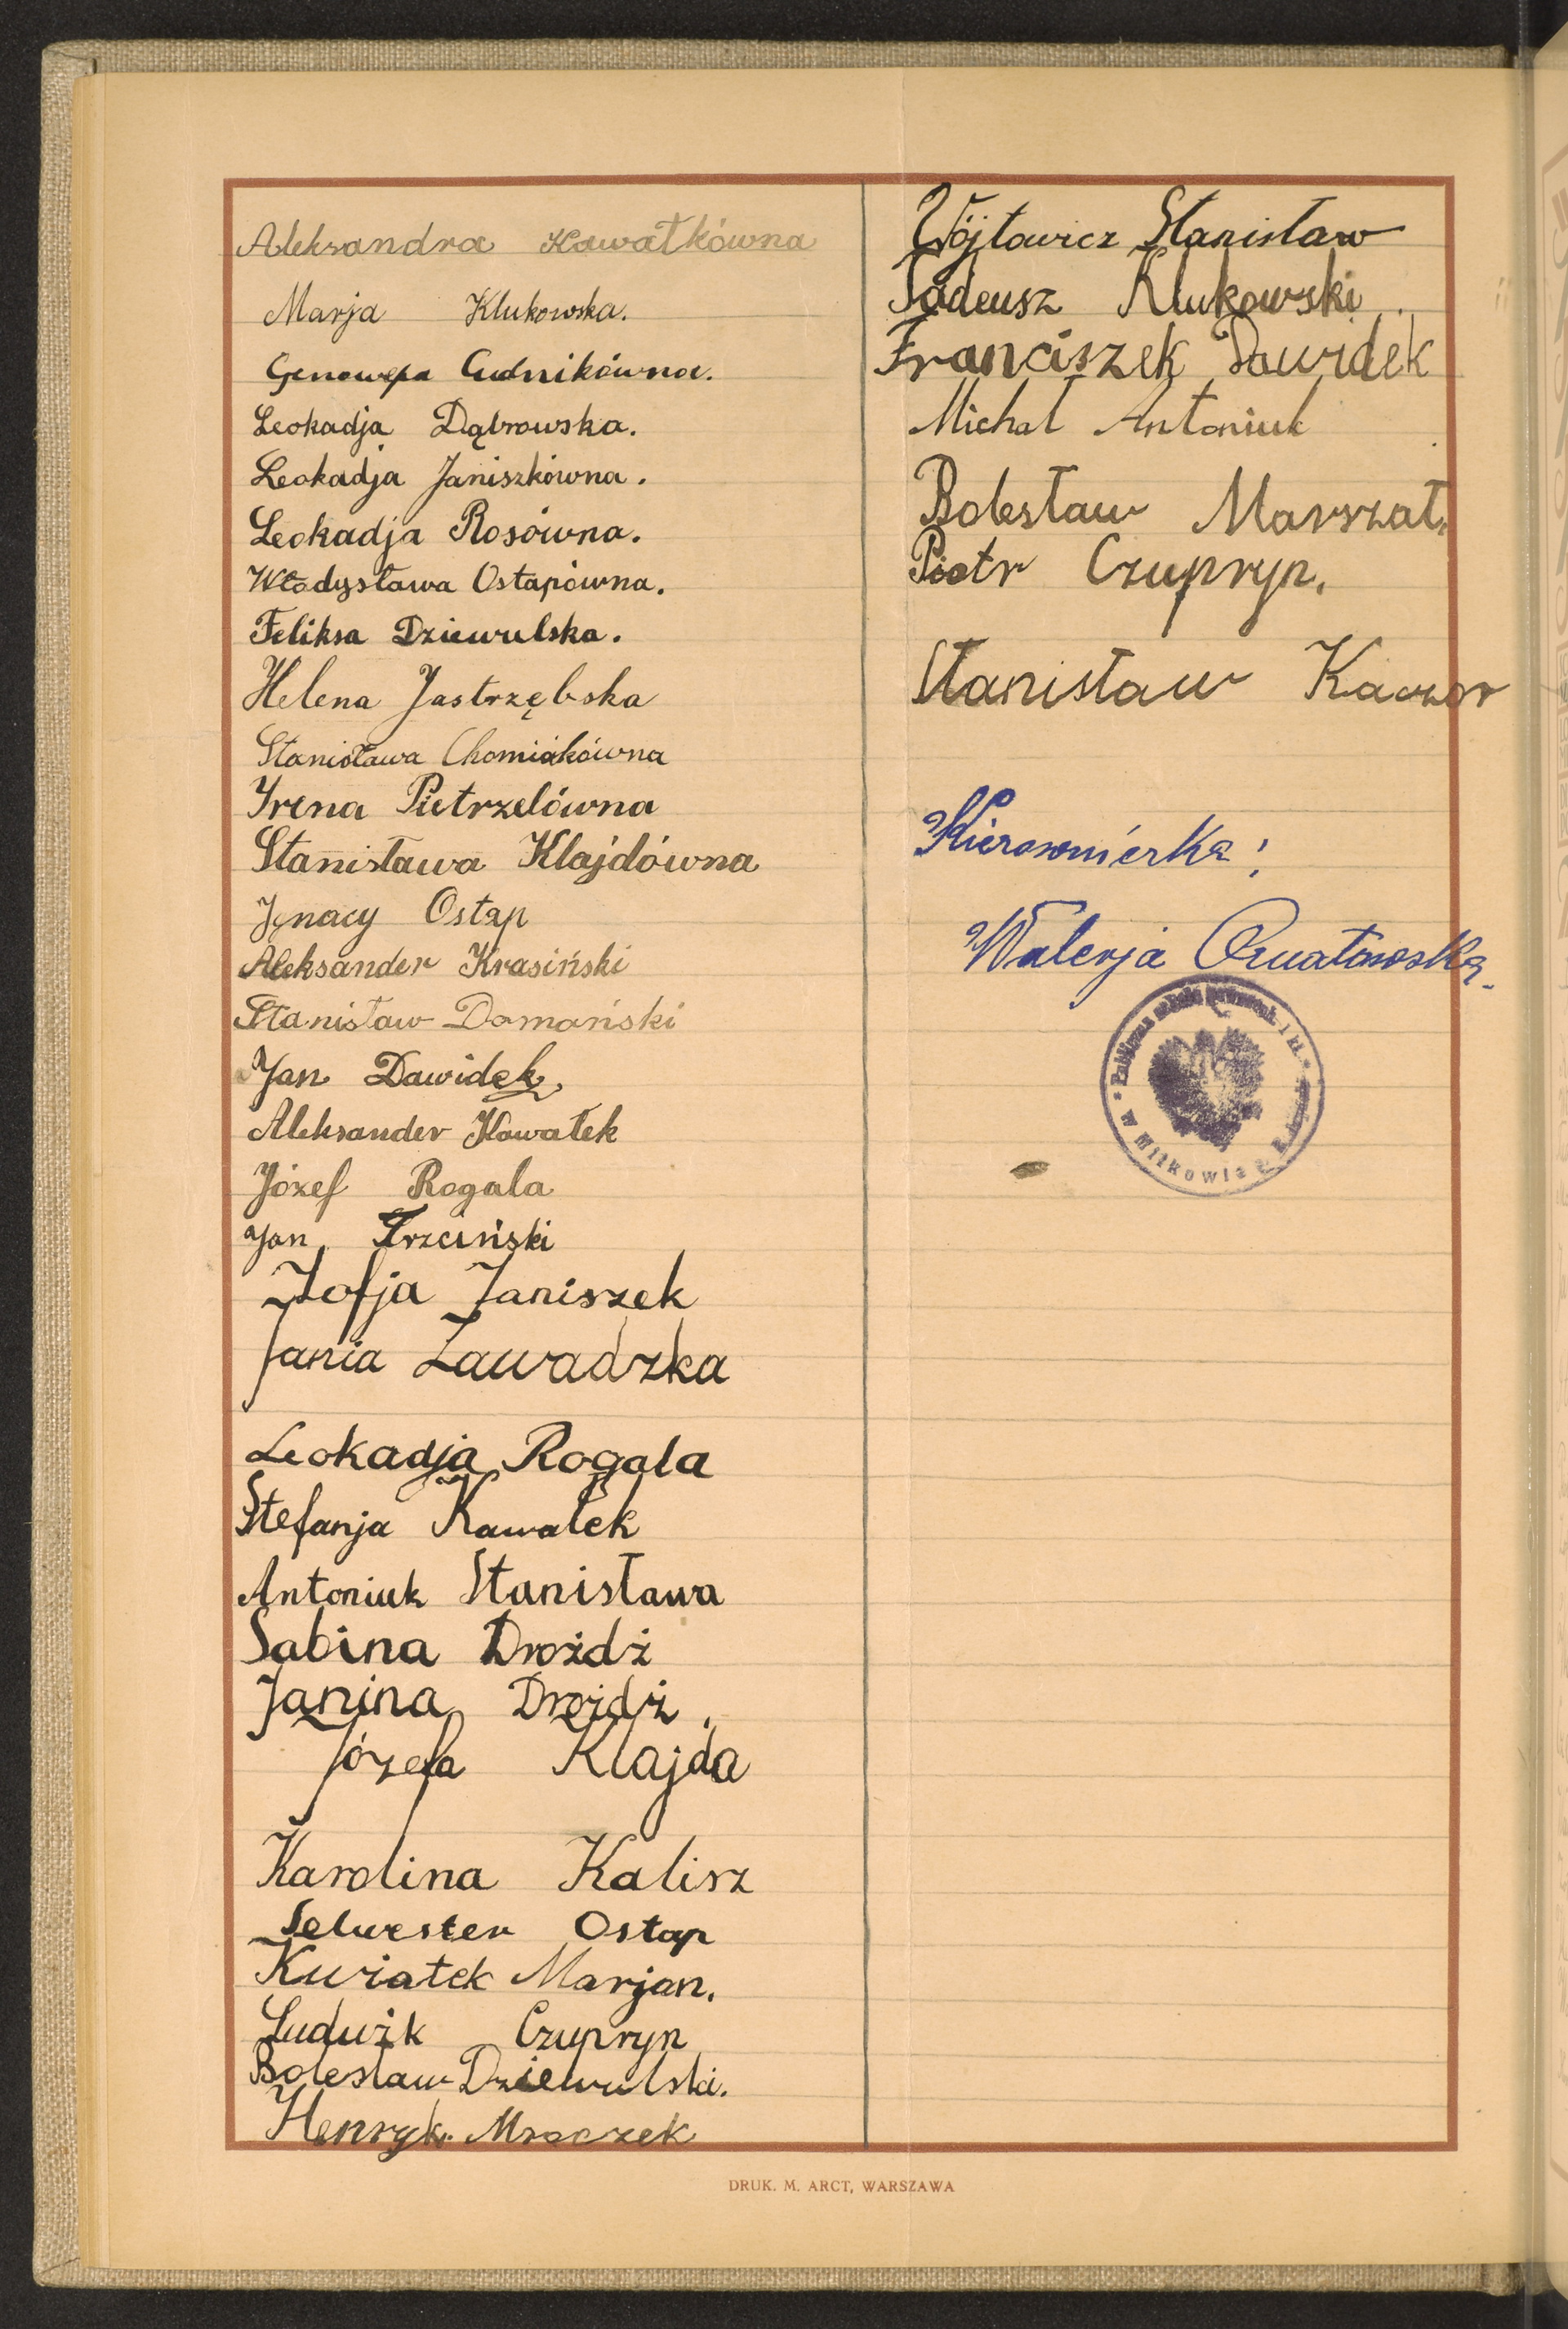 Aleksandra Kawałkówna
Marja Klukowska.
Genowefa Cudnikówna.
Leokadja Dąbrowska.
Leokadja Janiszkówna.
Leokadja Rosówna.
Władysława Ostapówna.
Feliksa Dziewulska.
Helena Jastrzębska
Stanisława Chomiakówna
Irena Pietrzelówna
Stanisława Klajdówna
Ignacy Ostap
Aleksander Krasiński
Stanisław Domański
Jan Dawidek
Aleksander Kawałek
Józef Rogala
Jan Trzciński
Zofja Janiszek
Jania Zawadzka
Leokadja Rogala
Stefanja Kawałek
Antoniuk Stanisława
Sabina Drożdż
Janina Drożdż.
Józefa Klajda
Karolina Kalisz
Selwester Ostap
Kwiatek Marjan.
Ludwik Czupryn
Bolesław Dziewulski.
Henryk Mroczek
Wójtowicz Stanisław
Tadeusz Klukowski
Franciszek Dawidek
Michał Antoniuk
Bolesław Marszał.
Piotr Czupryn.
Stanisław Kaczor
Kierowniczka:
Walerja
Publiczna szkoła powszech. I kl.
w
DRUK. M. ARCT, WARSZAWA